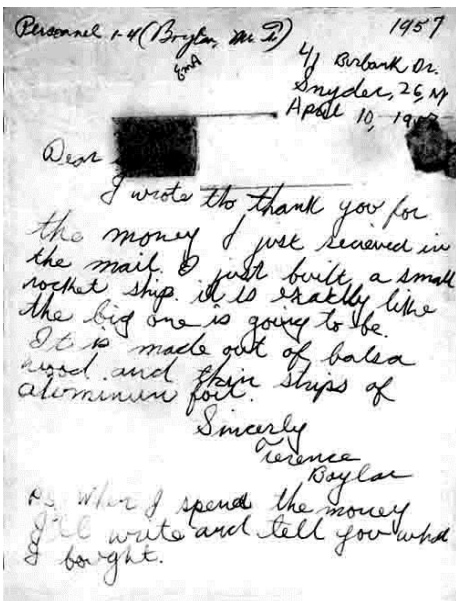 Personnel 1-4 (Boylan, Mr. T.) 1957
41 Burbank Dr.
Snyder, 26, N
April 10, 1957
Dear
I wrote tho thank you for
the money I just recieved in
the mail. I just built a small
rocket ship. it is exaktly like
the big one is going to be.
It is made out of balsa
wood and thin strips of
aluminium foil.
Sincerly
Terence
Boylan
PS. When I spend the money
I'll write and tell you what
I bought.